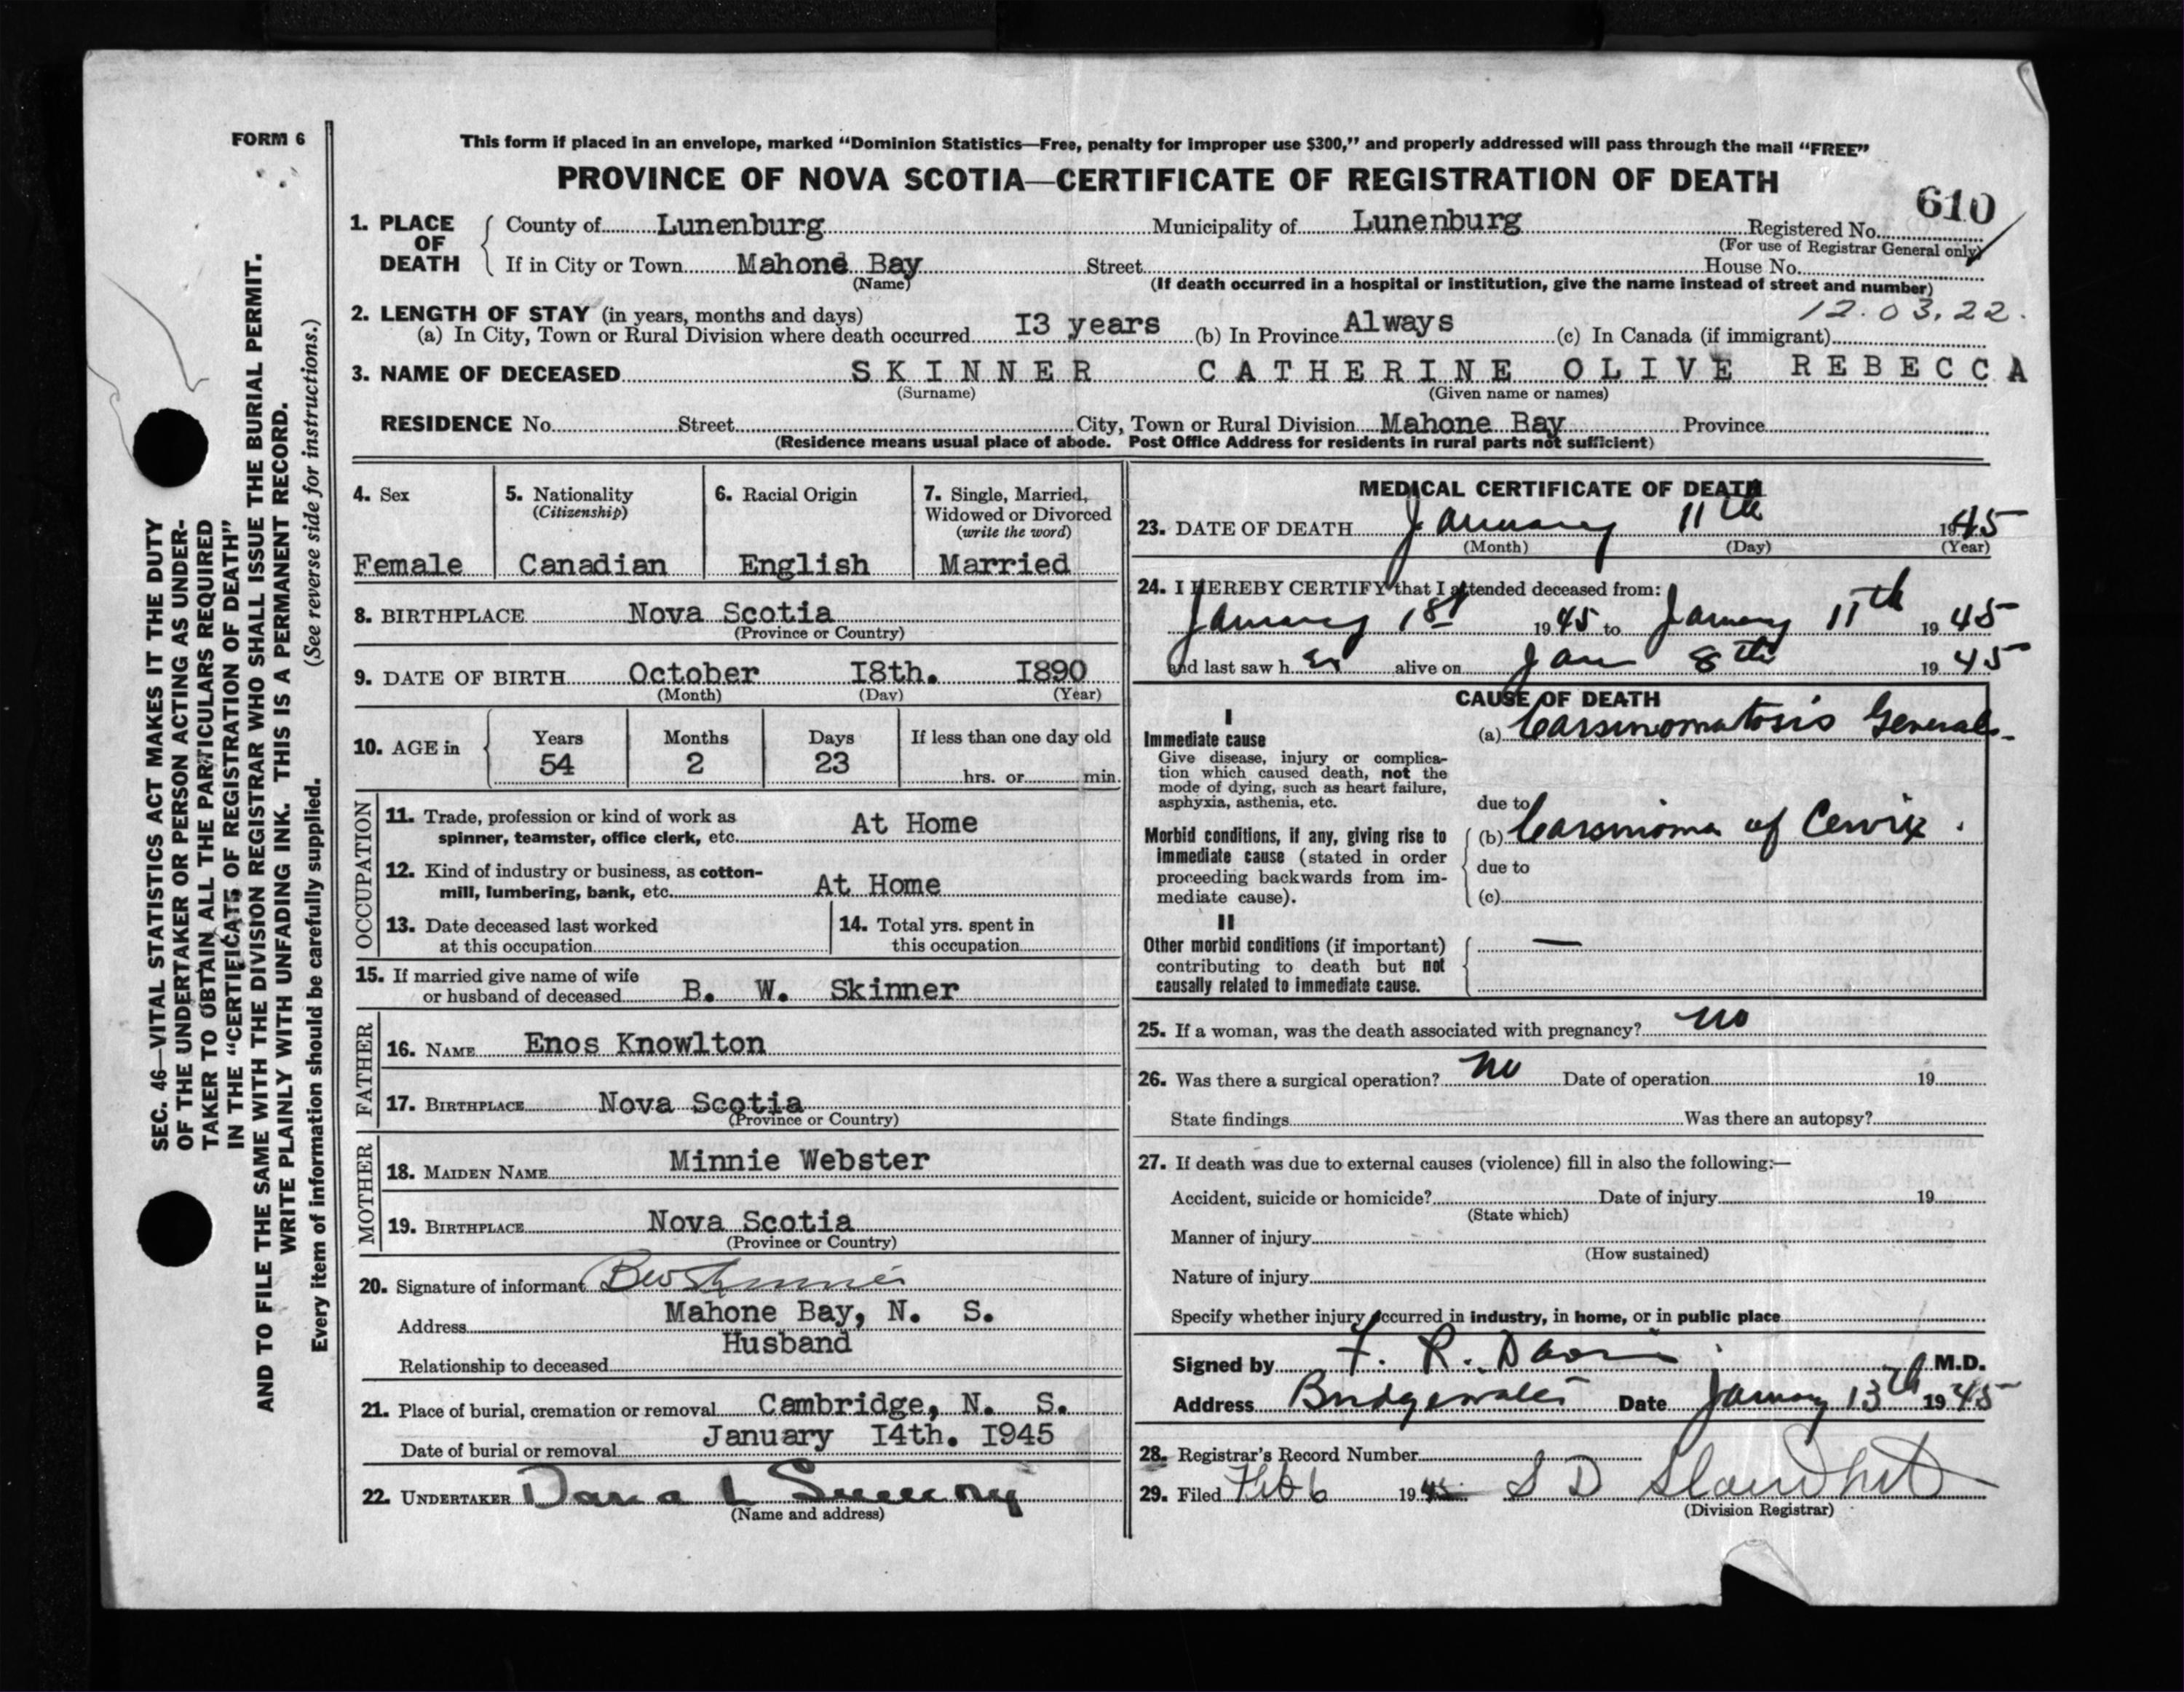 FORM 6
This form if placed in an envelope, marked “Dominion Statistics—Free, penalty for improper use $300,” and properly addressed will pass through the mail “FREE”
PROVINCE OF NOVA SCOTIA—CERTIFICATE OF REGISTRATION OF DEATH
610
1. PLACE OF DEATH
County of Lunenburg Municipality of Lunenburg Registered No.
(For use of Registrar General only)
If in City or Town Mahone Bay Street House No.
(Name) (If death occurred in a hospital or institution, give the name instead of street and number)
12.03.22.
2. LENGTH OF STAY (in years, months and days)
(a) In City, Town or Rural Division where death occurred I3 years (b) In Province Always (c) In Canada (if immigrant)
3. NAME OF DECEASED SKINNER CATHERINE OLIVE REBECCA
(Surname) (Given name or names)
RESIDENCE No. Street City, Town or Rural Division Mahone Bay Province
(Residence means usual place of abode. Post Office Address for residents in rural parts not sufficient)
4. Sex
Female
5. Nationality
(Citizenship)
Canadian
6. Racial Origin
English
7. Single, Married,
Widowed or Divorced
(write the word)
Married
8. BIRTHPLACE Nova Scotia
(Province or Country)
9. DATE OF BIRTH October I8th. I890
(Month) (Day) (Year)
10. AGE in
Years Months Days If less than one day old
54 2 23 hrs. or min.
OCCUPATION
11. Trade, profession or kind of work as
spinner, teamster, office clerk, etc. At Home
12. Kind of industry or business, as cotton-
mill, lumbering, bank, etc. At Home
13. Date deceased last worked
at this occupation
14. Total yrs. spent in
this occupation
15. If married give name of wife
or husband of deceased B. W. Skinner
FATHER
16. NAME Enos Knowlton
17. BIRTHPLACE Nova Scotia
(Province or Country)
MOTHER
18. MAIDEN NAME Minnie Webster
19. BIRTHPLACE Nova Scotia
(Province or Country)
20. Signature of informant BW Skinner
Address Mahone Bay, N. S.
Husband
Relationship to deceased
21. Place of burial, cremation or removal Cambridge, N. S.
Date of burial or removal January I4th. I945
22. UNDERTAKER Dana L Sweeny
(Name and address)
MEDICAL CERTIFICATE OF DEATH
23. DATE OF DEATH January 11th 1945
(Month) (Day) (Year)
24. I HEREBY CERTIFY that I attended deceased from:
January 1st 1945 to January 11th 1945
and last saw her alive on Jan 8th 1945
CAUSE OF DEATH
I
Immediate cause
Give disease, injury or complica-
tion which caused death, not the
mode of dying, such as heart failure,
asphyxia, asthenia, etc.
(a) Carsinomatosis General.
due to
Morbid conditions, if any, giving rise to
immediate cause (stated in order
proceeding backwards from im-
mediate cause).
(b) Carsinoma of Cervix.
due to
(c)
II
Other morbid conditions (if important)
contributing to death but not
causally related to immediate cause.
—
25. If a woman, was the death associated with pregnancy? no
26. Was there a surgical operation? no Date of operation 19
State findings Was there an autopsy?
27. If death was due to external causes (violence) fill in also the following:—
Accident, suicide or homicide? Date of injury 19
(State which)
Manner of injury
(How sustained)
Nature of injury
Specify whether injury occurred in industry, in home, or in public place
Signed by F. R. Davis M.D.
Address Bridgewater Date January 13th 1945
28. Registrar's Record Number
29. Filed Feb 6 1945 S D Slauenwhite
(Division Registrar)
SEC. 46—VITAL STATISTICS ACT MAKES IT THE DUTY
OF THE UNDERTAKER OR PERSON ACTING AS UNDER-
TAKER TO OBTAIN ALL THE PARTICULARS REQUIRED
IN THE “CERTIFICATE OF REGISTRATION OF DEATH”
AND TO FILE THE SAME WITH THE DIVISION REGISTRAR WHO SHALL ISSUE THE BURIAL PERMIT.
WRITE PLAINLY WITH UNFADING INK. THIS IS A PERMANENT RECORD.
Every item of information should be carefully supplied. (See reverse side for instructions.)